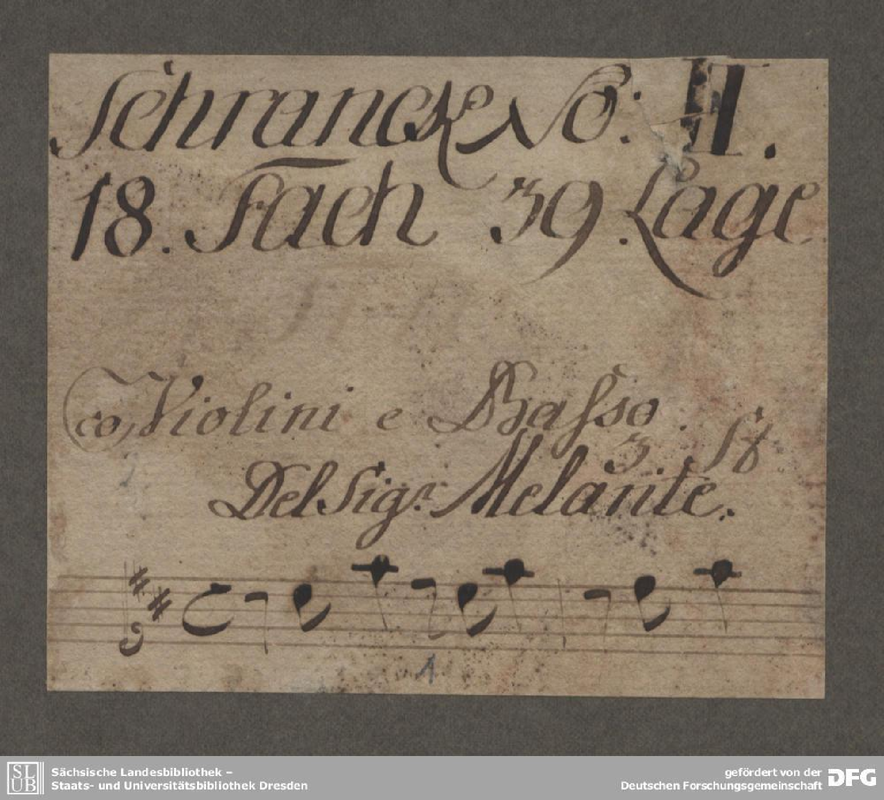 Schranck No: II.
18. Fach 39. Lage
co Violini e Basso.
3. 18
Del Sigr. Melante.
1
SLUB
Sächsische Landesbibliothek –
Staats- und Universitätsbibliothek Dresden
gefördert von der
Deutschen Forschungsgemeinschaft
DFG